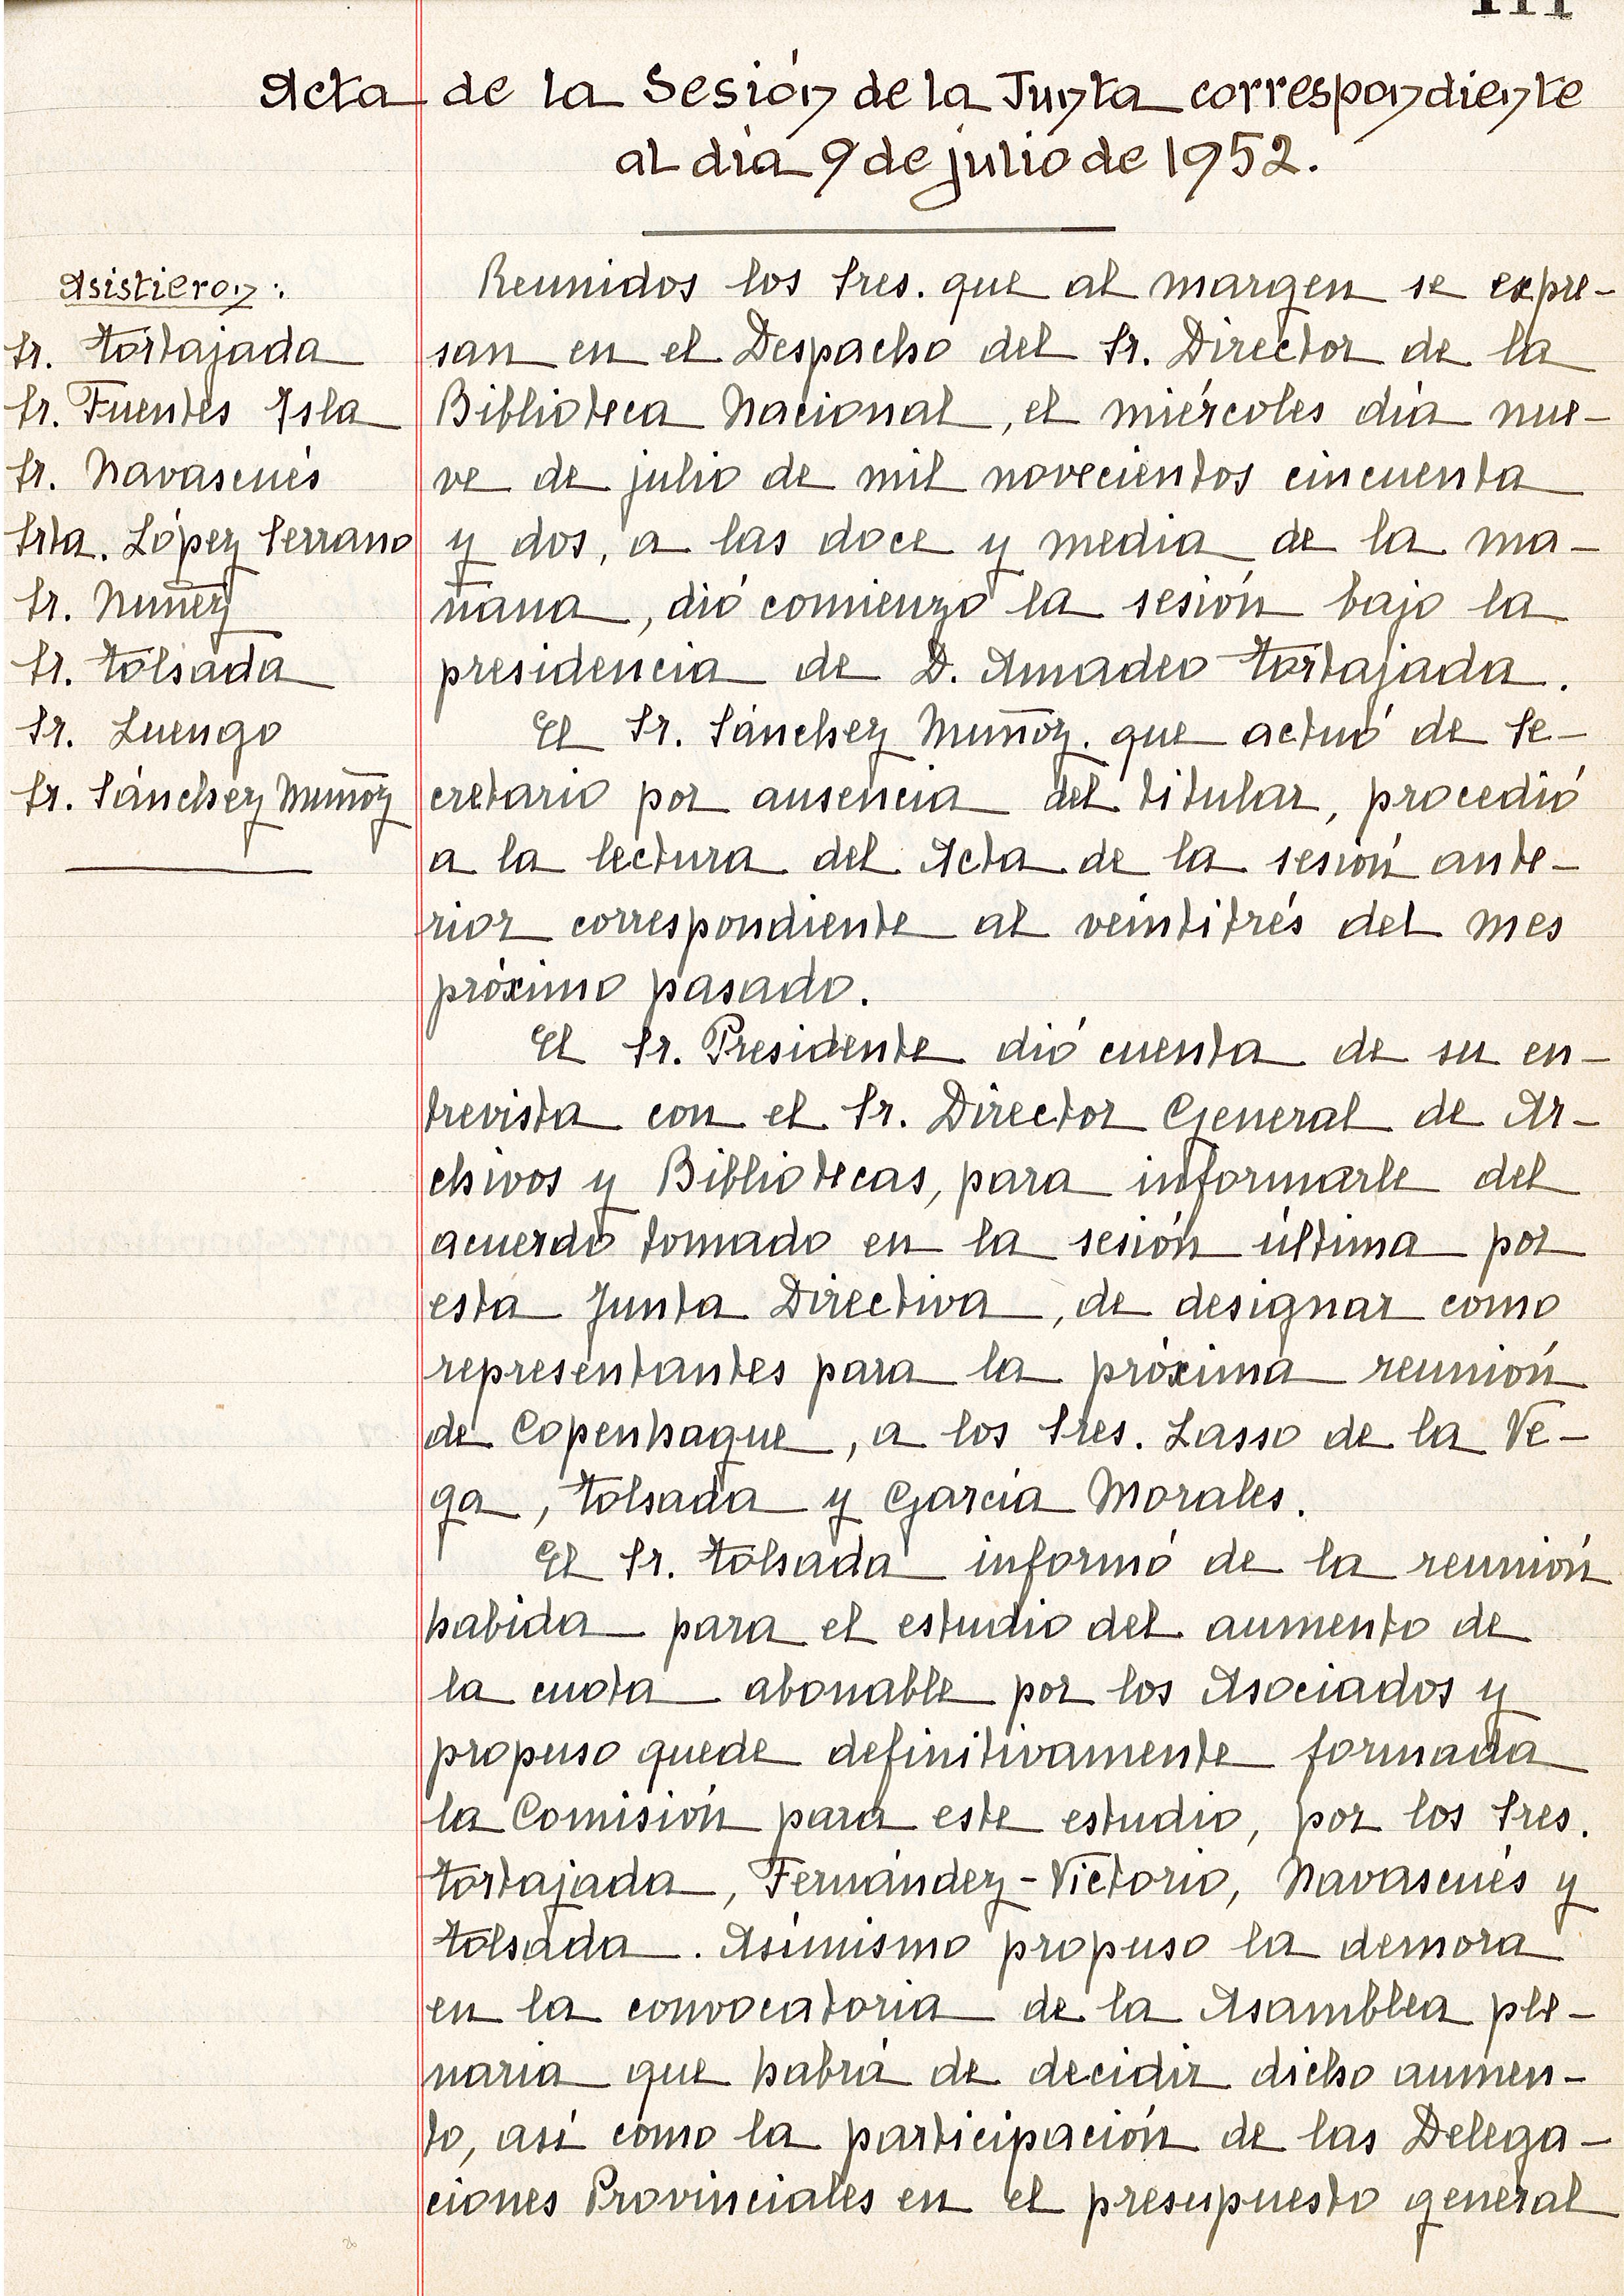 Acta de la Sesión de la Junta correspondiente
al dia 9 de julio de 1952.
Asistieron:
Sr. Tortajada
Sr. Fuentes Isla
Sr. Navascués
Srta. López Serrano
Sr. Nuñez
Sr. Tolsada
Sr. Luengo
Sr. Sánchez Muñoz
Reunidos los Sres. que al margen se expre-
san en el Despacho del Sr. Director de la
Biblioteca Nacional, el miércoles dia nue-
ve de julio de mil novecientos cincuenta
y dos, a las doce y media de la ma-
ñana, dió comienzo la sesión bajo la
presidencia de D. Amadeo Tortajada.
El Sr. Sánchez Muñoz. que actuó de Se-
cretario por ausencia del titular, procedió
a la lectura del Acta de la sesión ante-
rior correspondiente al veintitrés del mes
próximo pasado.
El Sr. Presidente dió cuenta de su en-
trevista con el Sr. Director General de Ar-
chivos y Bibliotecas, para informarle del
acuerdo tomado en la sesión última por
esta Junta Directiva, de designar como
representantes para la próxima reunión
de Copenhague, a los Sres. Lasso de la Ve-
ga, Tolsada y García Morales.
El Sr. Tolsada informó de la reunión
habida para el estudio del aumento de
la cuota abonable por los Asociados y
propuso quede definitivamente formada
la Comisión para este estudio, por los Sres.
Tortajada, Fernández-Victorio, Navascués y
Tolsada. Asímismo propuso la demora
en la convocatoria de la Asamblea ple-
naria que habrá de decidir dicho aumen-
to, así como la participación de las Delega-
ciones Provinciales en el presupuesto general